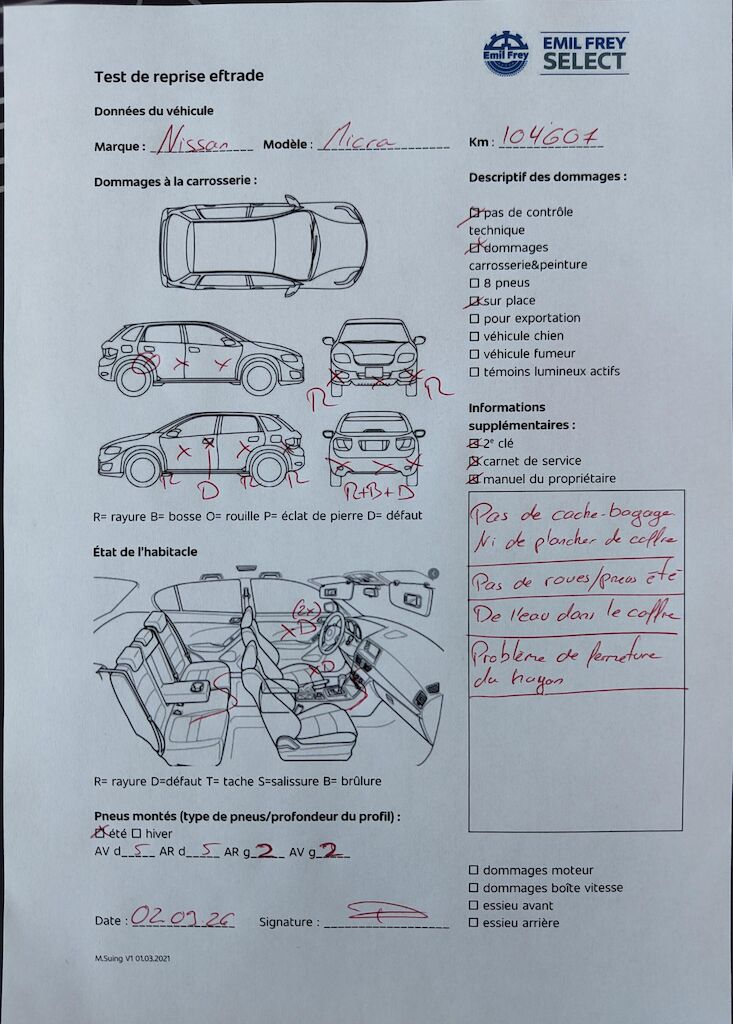 Emil Frey
EMIL FREY
SELECT
Test de reprise eftrade
Données du véhicule
Marque : Nissan Modèle : Micra Km : 104607
Dommages à la carrosserie :
R R
R D R R R+B+D
R= rayure B= bosse O= rouille P= éclat de pierre D= défaut
État de l'habitacle
(2x)
D
D
R= rayure D=défaut T= tache S=salissure B= brûlure
Pneus montés (type de pneus/profondeur du profil) :
été hiver
AV d 5 AR d 5 AR g 2 AV g 2
Date : 02.09.26 Signature :
M.Suing V1 01.03.2021
Descriptif des dommages :
pas de contrôle
technique
dommages
carrosserie&peinture
8 pneus
sur place
pour exportation
véhicule chien
véhicule fumeur
témoins lumineux actifs
Informations
supplémentaires :
2e clé
carnet de service
manuel du propriétaire
Pas de cache-bagage
Ni de plancher de coffre
Pas de roues/pneus été
De l'eau dans le coffre
Problème de fermeture
du hayon
dommages moteur
dommages boîte vitesse
essieu avant
essieu arrière